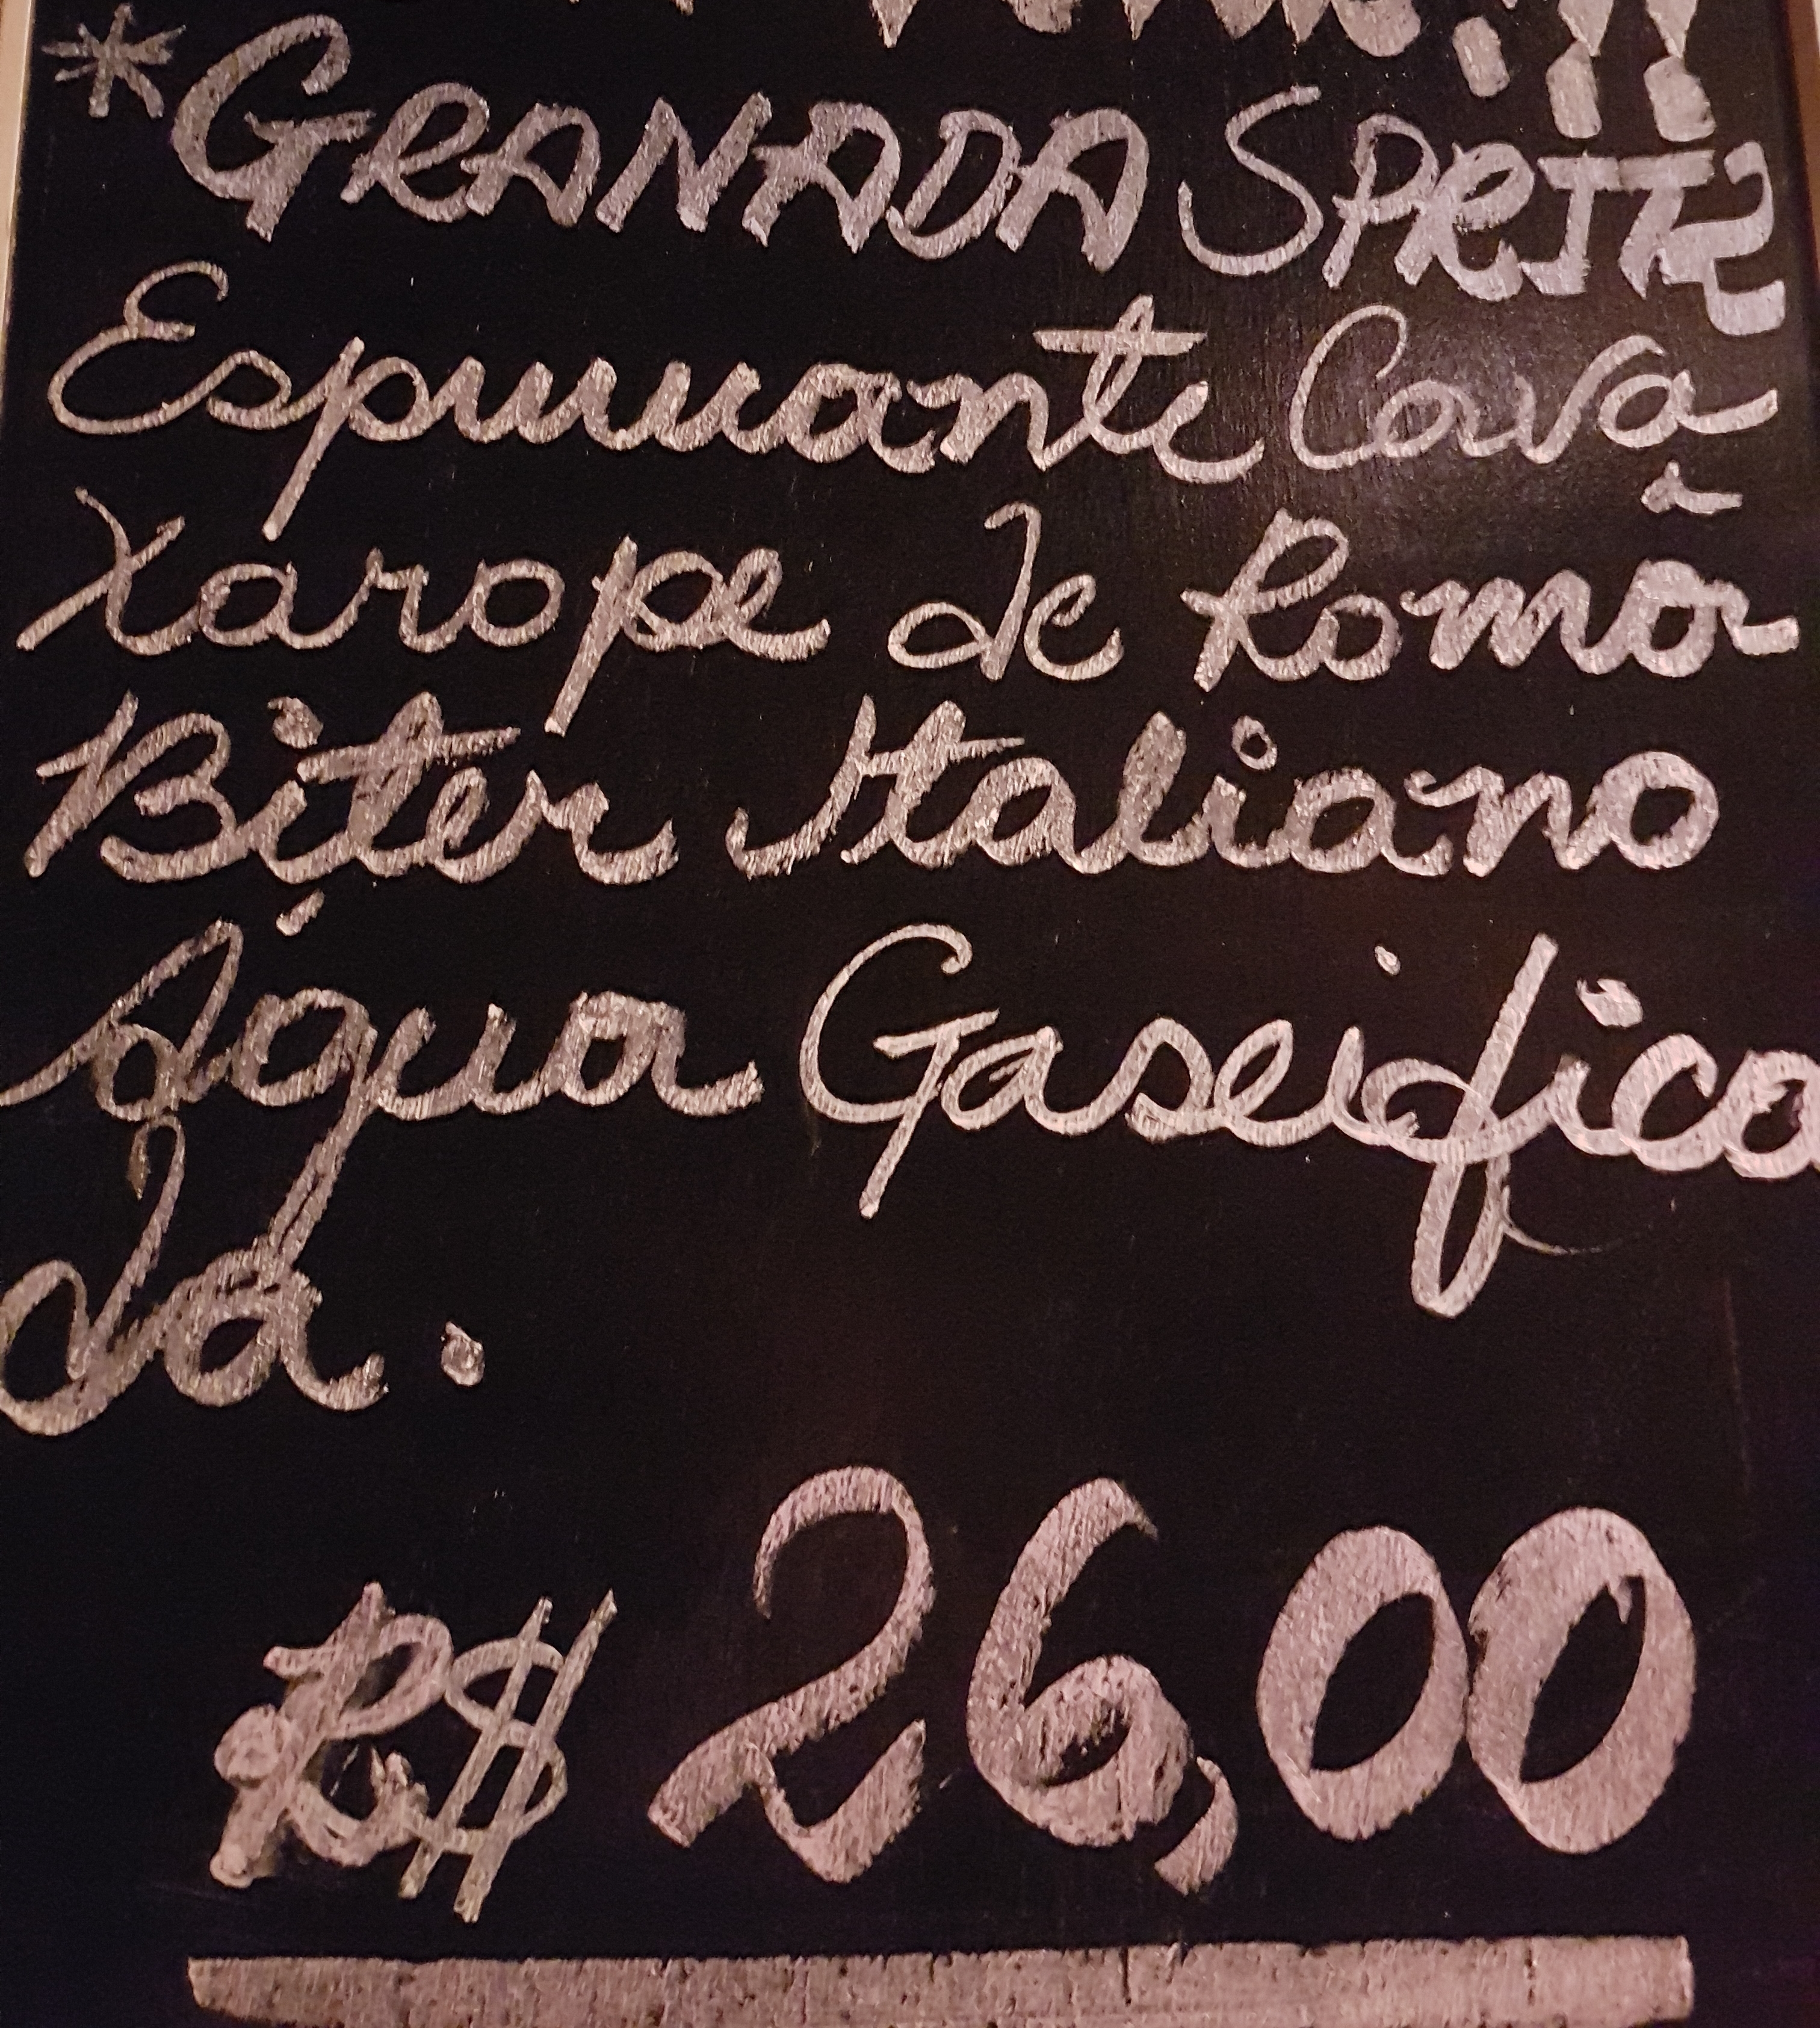 *GRANADA SPRITZ
Espumante Cava
Xarope de Romã
Biter Italiano
Água Gaseifica
da.
R$ 26,00